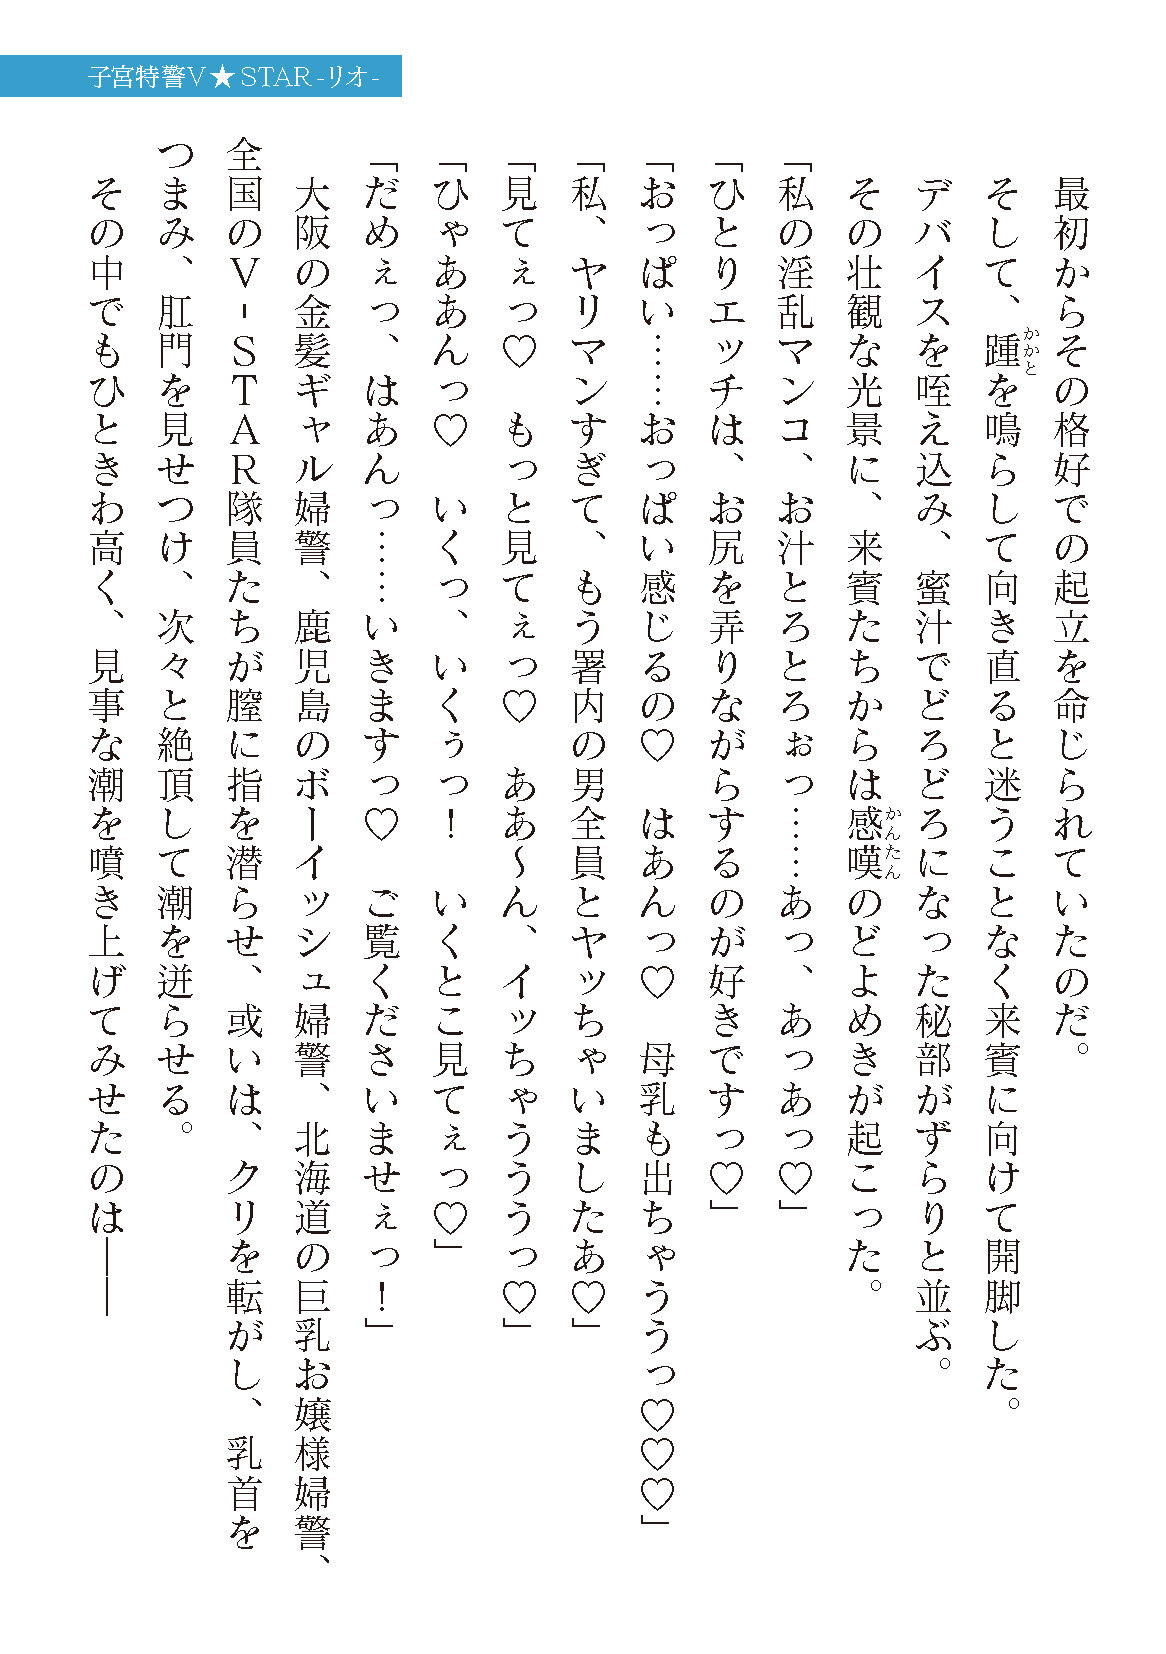 子宮特警V★STAR-リオ-
最初からその格好での起立を命じられていたのだ。
そして、踵を鳴らして向き直ると迷うことなく来賓に向けて開脚した。
かかと
デバイスを咥え込み、蜜汁でどろどろになった秘部がずらりと並ぶ。
その壮観な光景に、来賓たちからは感嘆のどよめきが起こった。
かんたん
「私の淫乱マンコ、お汁とろとろぉっ……あっ、あっあっ♡」
「ひとりエッチは、お尻を弄りながらするのが好きですっ♡」
「おっぱい……おっぱい感じるの♡　はあんっ♡　母乳も出ちゃううっ♡♡♡」
「私、ヤリマンすぎて、もう署内の男全員とヤッちゃいましたあ♡」
「見てぇっ♡　もっと見てぇっ♡　ああ〜ん、イッちゃううっ♡」
「ひゃああんっ♡　いくっ、いくぅっ！　いくとこ見てぇっ♡」
「だめぇっ、はあんっ……いきますっ♡　ご覧くださいませぇっ！」
大阪の金髪ギャル婦警、鹿児島のボーイッシュ婦警、北海道の巨乳お嬢様婦警、
全国のV-STAR隊員たちが膣に指を潜らせ、或いは、クリを転がし、乳首を
つまみ、肛門を見せつけ、次々と絶頂して潮を迸らせる。
その中でもひときわ高く、見事な潮を噴き上げてみせたのは――